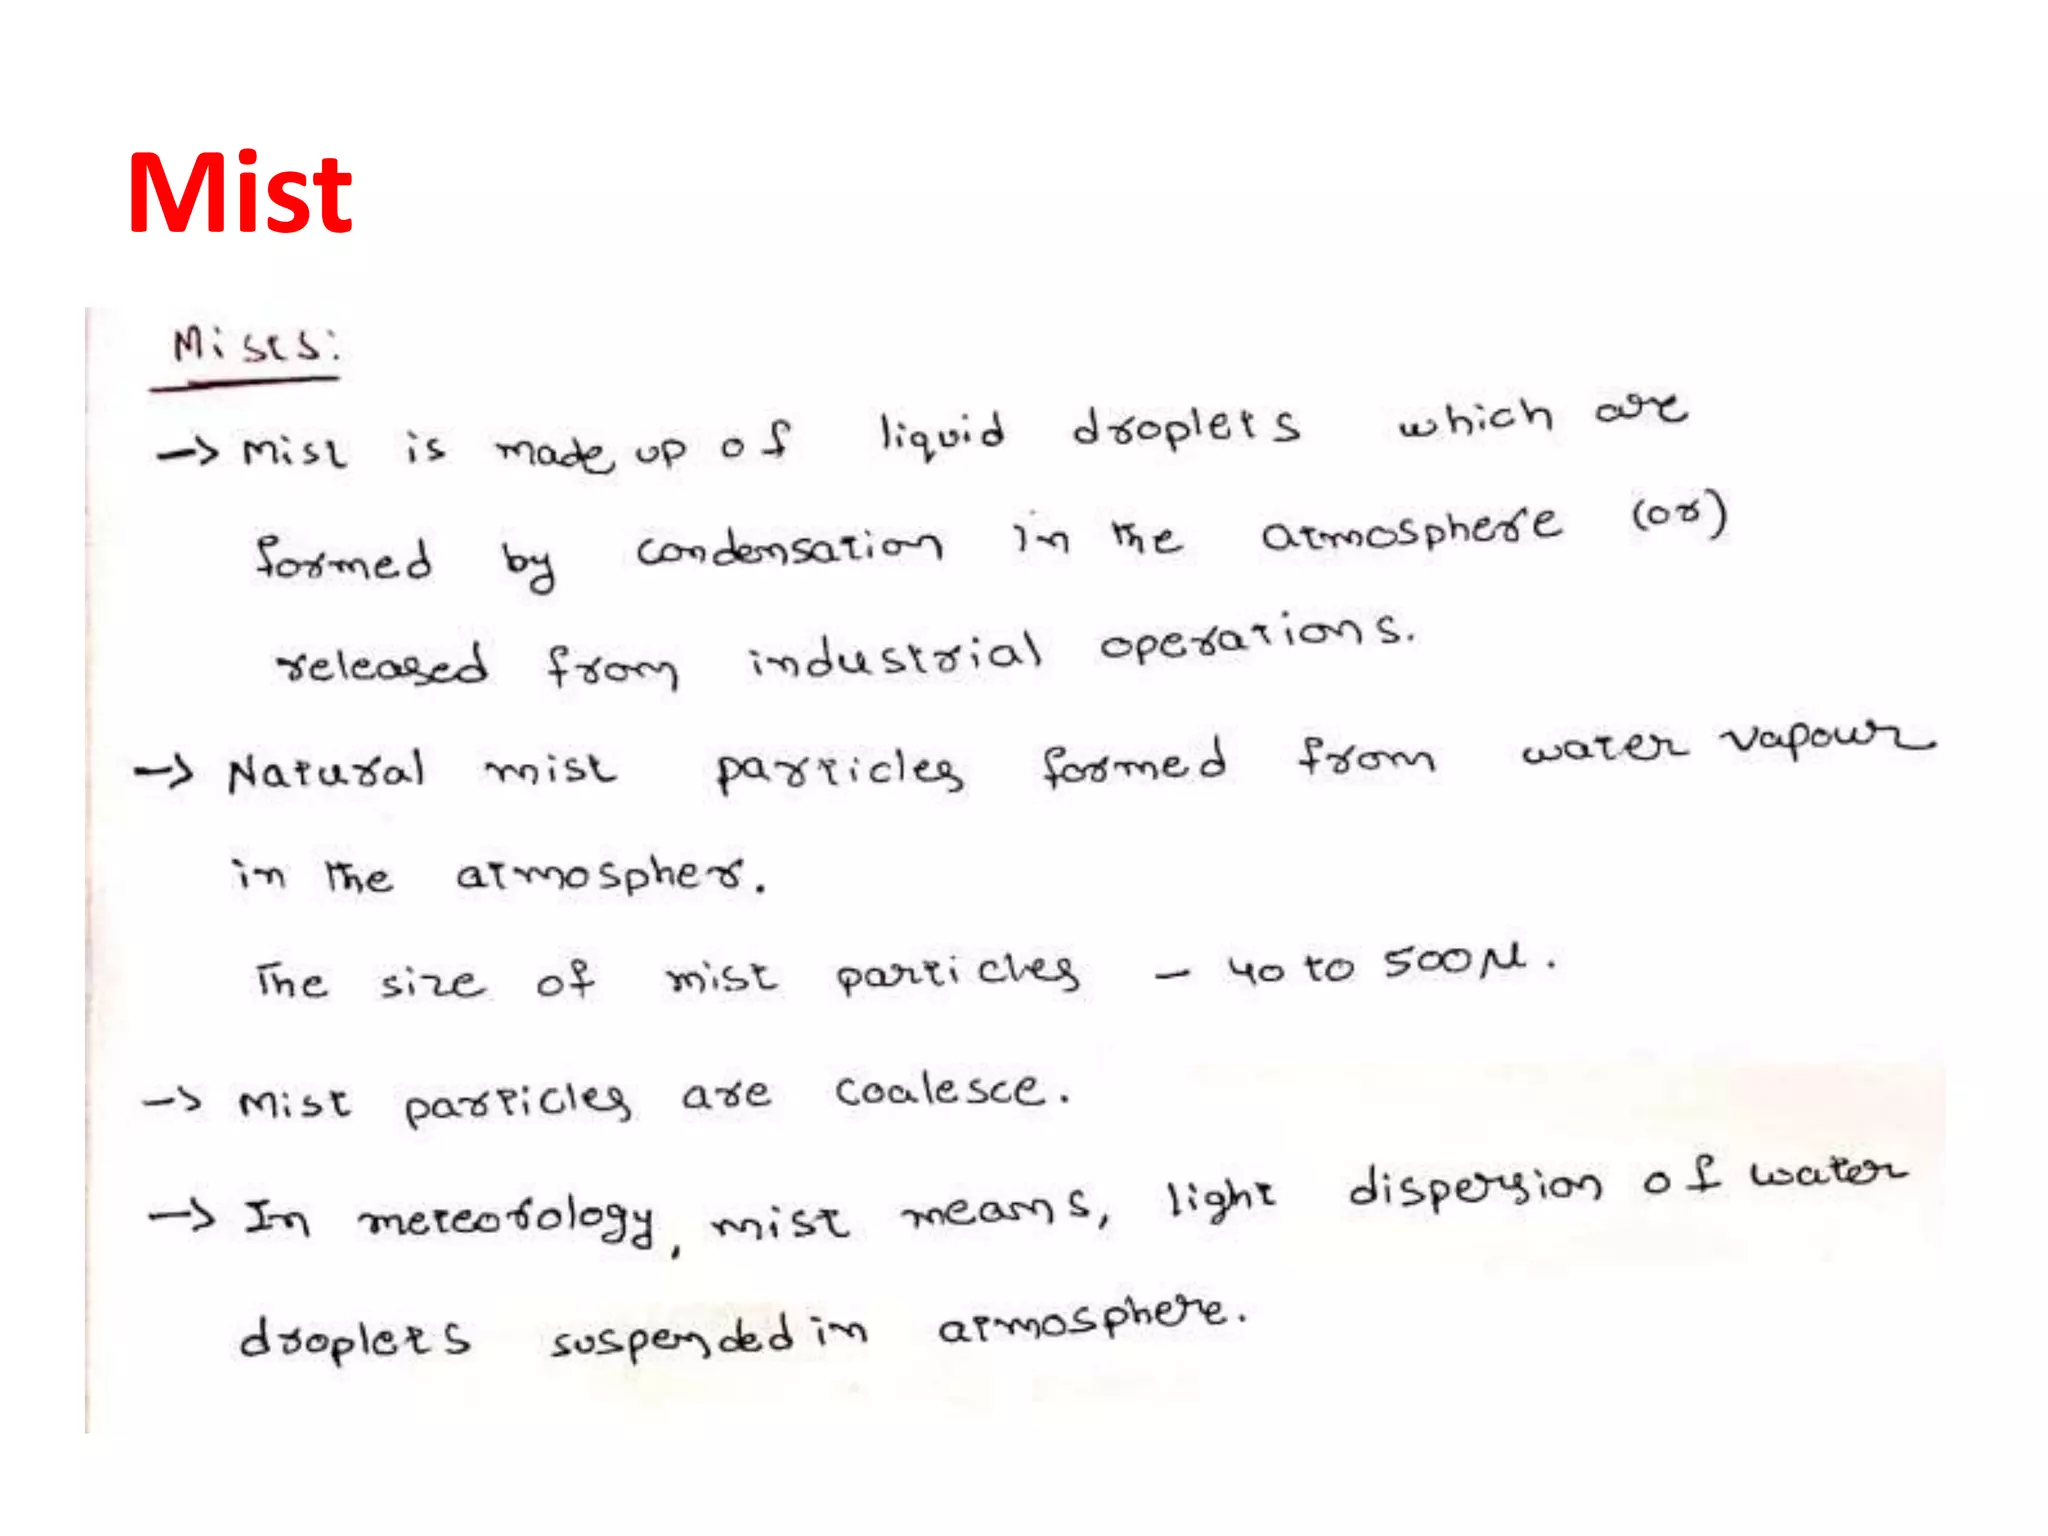 Mist
Mists:
→ Mist is made up of liquid droplets which are
formed by condensation in the atmosphere (or)
released from industrial operations.
→ Natural mist particles formed from water vapour
in the atmospher.
The size of mist particles - 40 to 500 μ.
→ Mist particles are coalesce.
→ In meteorology, mist means, light dispersion of water
droplets suspended in atmosphere.